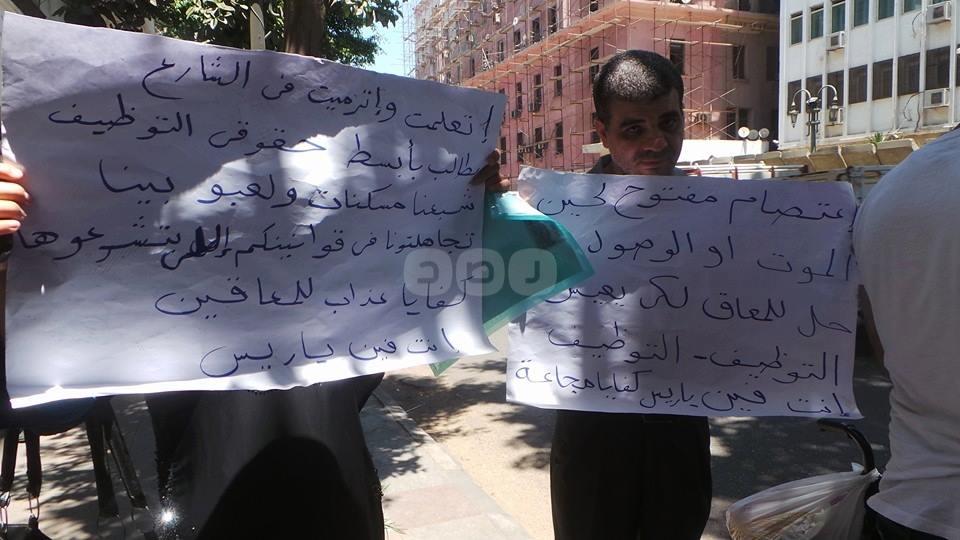 إتعلمت وإترميت في الشارع
بطالب بأبسط حقوقى التوظيف
شبعنا مسكنات ولعبو بينا
تجاهلتونا فى قوانينكم بتشرعوها
كفايا عذاب للمعاقين
انت فين ياريس
اعتصام مفتوح لحين
الموت او الوصول
حل للمعاق لكى يعيش
التوظيف - التوظيف
انت فين ياريس كفايا مجاعة